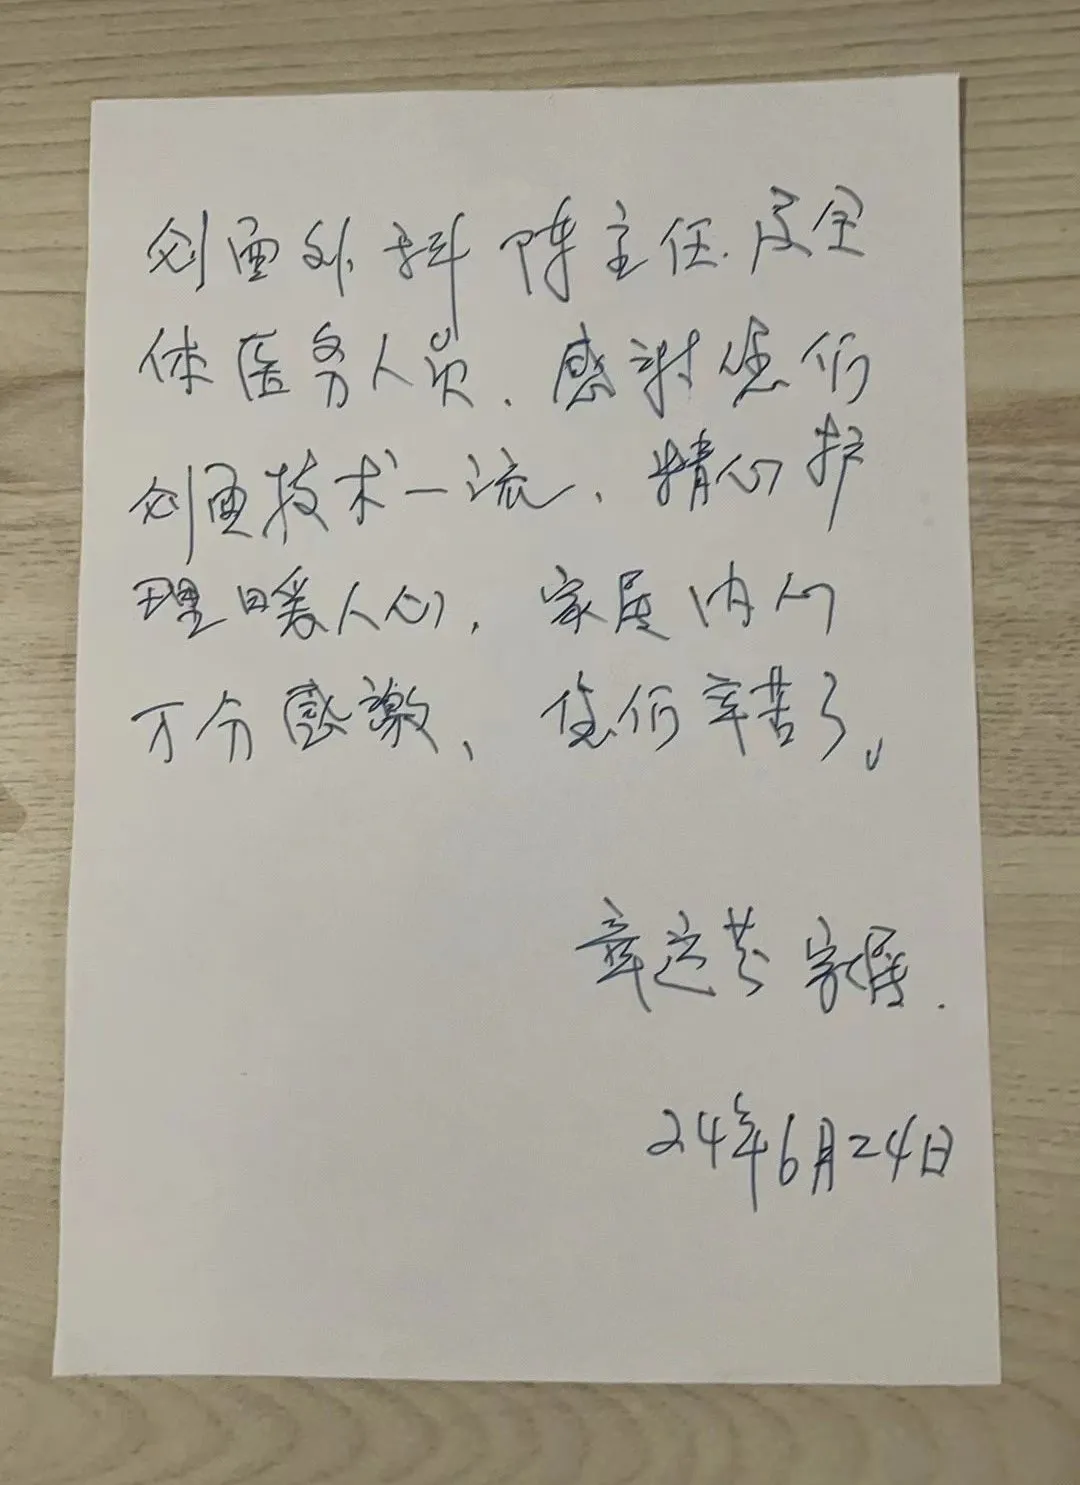 创面外科陈主任.及全
体医务人员、感谢您们
创面技术一流、精心护
理暖人心，家属内心
万分感激、您们辛苦了。
章 家属.
24年6月24日